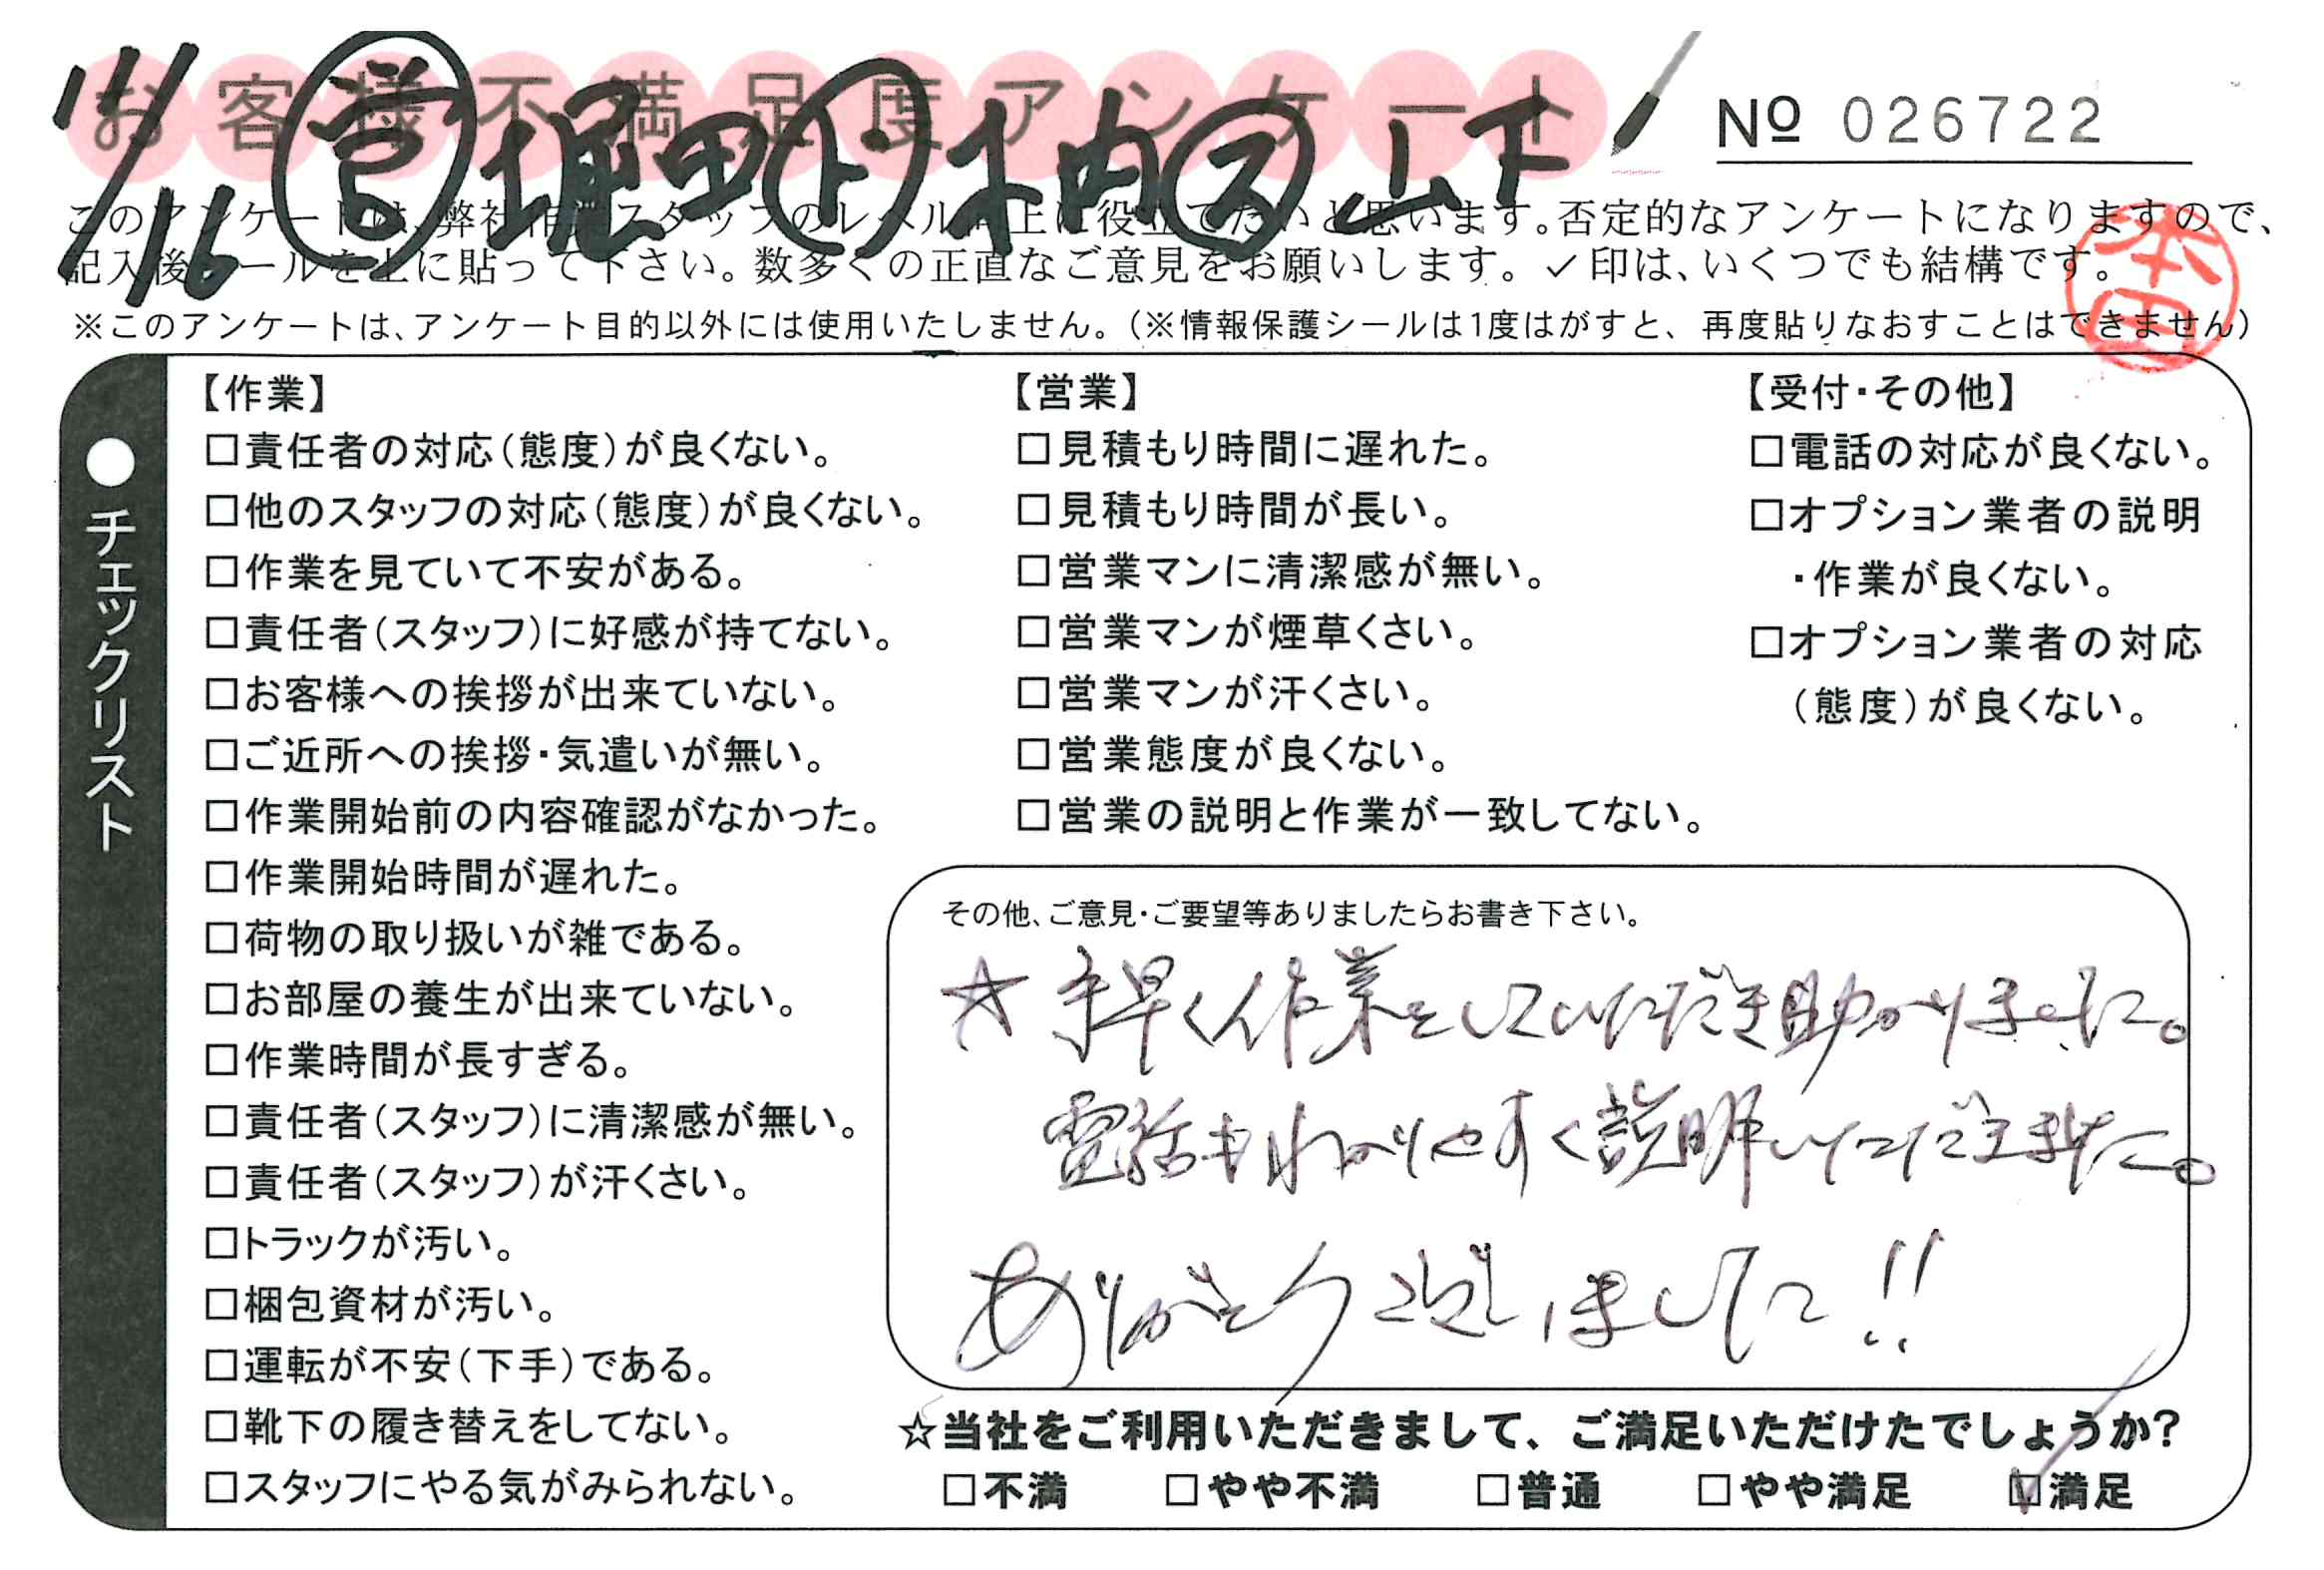 お客様不満足度アンケート
No 026722
11/16 営 堀田 ト 木内 ス 山下
このアンケートは、弊社作業スタッフのレベル向上に役立てたいと思います。否定的なアンケートになりますので、
記入後シールを上に貼って下さい。数多くの正直なご意見をお願いします。✓印は、いくつでも結構です。
本田
※このアンケートは、アンケート目的以外には使用いたしません。(※情報保護シールは1度はがすと、再度貼りなおすことはできません)
●チェックリスト
【作業】
□責任者の対応(態度)が良くない。
□他のスタッフの対応(態度)が良くない。
□作業を見ていて不安がある。
□責任者(スタッフ)に好感が持てない。
□お客様への挨拶が出来ていない。
□ご近所への挨拶・気遣いが無い。
□作業開始前の内容確認がなかった。
□作業開始時間が遅れた。
□荷物の取り扱いが雑である。
□お部屋の養生が出来ていない。
□作業時間が長すぎる。
□責任者(スタッフ)に清潔感が無い。
□責任者(スタッフ)が汗くさい。
□トラックが汚い。
□梱包資材が汚い。
□運転が不安(下手)である。
□靴下の履き替えをしてない。
□スタッフにやる気がみられない。
【営業】
□見積もり時間に遅れた。
□見積もり時間が長い。
□営業マンに清潔感が無い。
□営業マンが煙草くさい。
□営業マンが汗くさい。
□営業態度が良くない。
□営業の説明と作業が一致してない。
【受付・その他】
□電話の対応が良くない。
□オプション業者の説明
・作業が良くない。
□オプション業者の対応
(態度)が良くない。
その他、ご意見・ご要望等ありましたらお書き下さい。
☆手早く作業をしていただき助かりました。
電話もわかりやすく説明いただきました。
ありがとうございました!!
☆当社をご利用いただきまして、ご満足いただけたでしょうか?
□不満 □やや不満 □普通 □やや満足 ☑満足